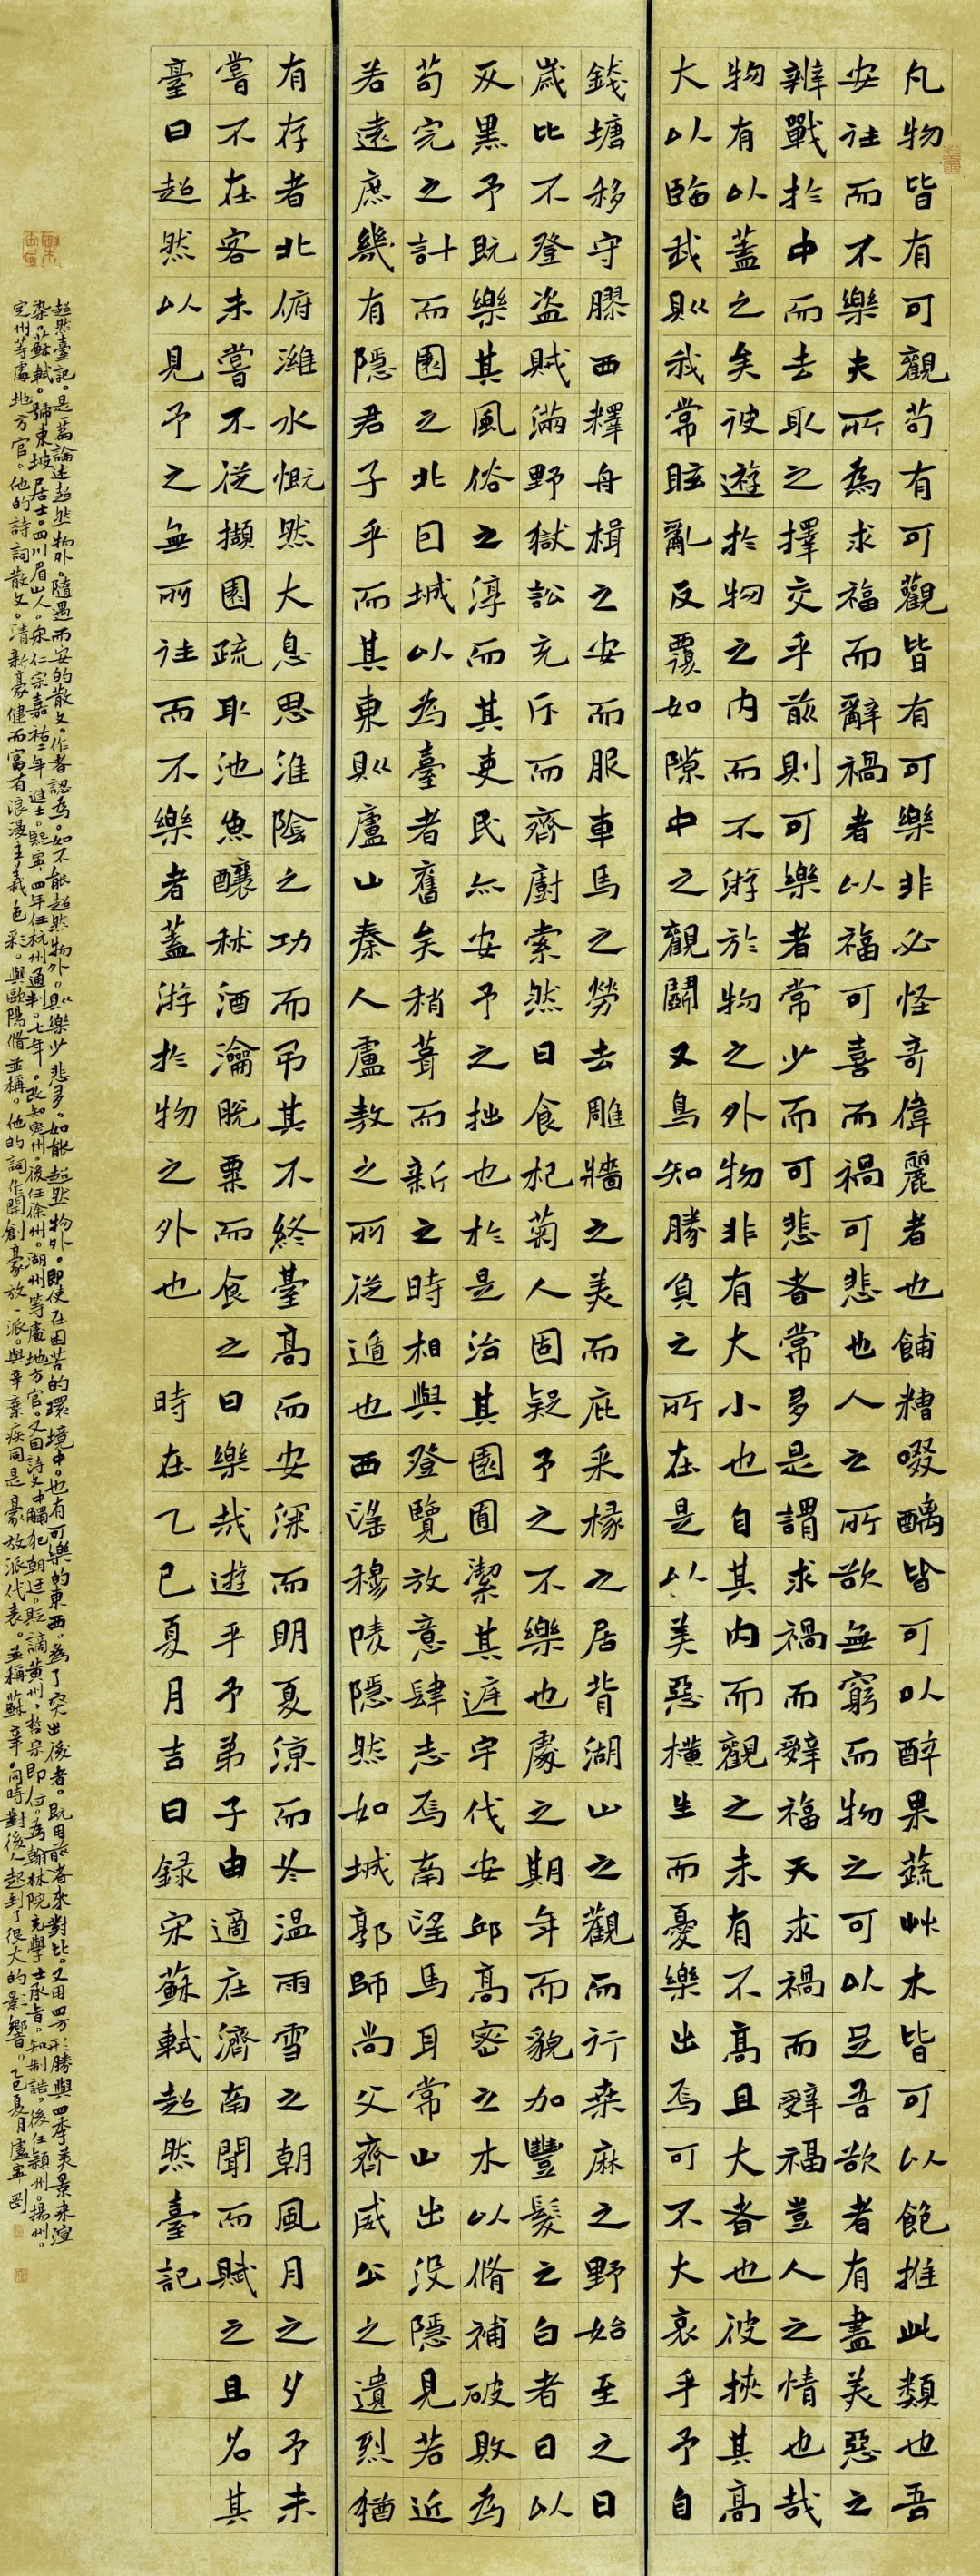 凡物皆有可觀苟有可觀皆有可樂非必怪奇偉麗者也餔糟啜醨皆可以醉果蔬艸木皆可以飽推此類也吾
安往而不樂夫所為求福而辭禍者以福可喜而禍可悲也人之所欲無窮而物之可以足吾欲者有盡美惡之
辨戰於中而去取之擇交乎前則可樂者常少而可悲者常多是謂求禍而辭福夫求禍而辭福豈人之情也哉
物有以蓋之矣彼遊於物之內而不游於物之外物非有大小也自其內而觀之未有不高且大者也彼挾其高
大以臨我則我常眩亂反覆如隙中之觀鬭又烏知勝負之所在是以美惡橫生而憂樂出焉可不大哀乎予自
錢塘移守膠西釋舟楫之安而服車馬之勞去雕牆之美而庇采椽之居背湖山之觀而行桑麻之野始至之日
歲比不登盜賊滿野獄訟充斥而齋廚索然日食杞菊人固疑予之不樂也處之期年而貌加豐髮之白者日以
反黑予既樂其風俗之淳而其吏民亦安予之拙也於是治其園囿潔其庭宇伐安邱高密之木以脩補破敗為
苟完之計而園之北因城以為臺者舊矣稍葺而新之時相與登覽放意肆志焉南望馬耳常山出沒隱見若近
若遠庶幾有隱君子乎而其東則盧山秦人盧敖之所從遁也西望穆陵隱然如城郭師尚父齊威公之遺烈猶
有存者北俯濰水慨然大息思淮陰之功而弔其不終臺高而安深而明夏涼而冬溫雨雪之朝風月之夕予未
嘗不在客未嘗不從擷園疏取池魚釀秫酒瀹脫粟而食之曰樂哉遊乎予弟子由適在濟南聞而賦之且名其
臺曰超然以見予之無所往而不樂者蓋游於物之外也 時在乙巳夏月吉日錄宋蘇軾超然臺記
超然臺記。是篇論述超然物外。隨遇而安的散文。作者認為。如不能超然物外。則樂少悲多。如能超然物外。即使在困苦的環境中。也有可樂的東西。為了突出後者。既用前者來對比。又用四方形勝與四季美景來渲
染。蘇軾。號東坡居士。四川眉山人。宋仁宗嘉祐二年進士。熙寧四年任杭州通判。七年。改知密州。後任徐州。湖州等處地方官。又因詩文中觸犯朝廷。貶謫黃州。哲宗即位。為翰林院充學士承旨。知制誥。後任潁州。揚州。
定州等處地方官。他的詩詞散文。清新豪健而富有浪漫主義色彩。與歐陽脩並稱。他的詞作開創豪放一派。與辛棄疾同是豪放派代表。並稱蘇辛。同時對後人起到了很大的影響。乙巳夏月盧軍剛